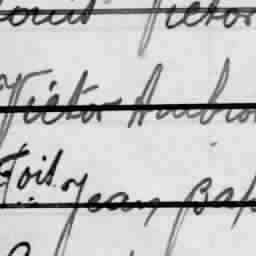 Louis Victor
Victor Ambro
Foit Jean Bap